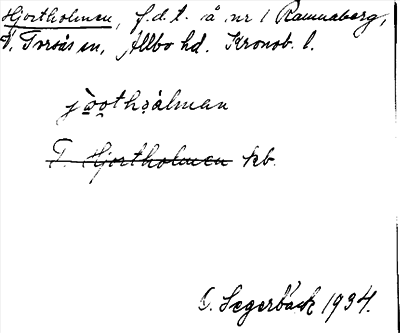 Hjortholmen, f.d.t. å nr 1 Ramnaberg,
V. Torsås sn, Allbo hd. Kronob. l.
jòo̯thɔ̀lman
T. Hjortholmen kb.
C. Segerbäck 1934.